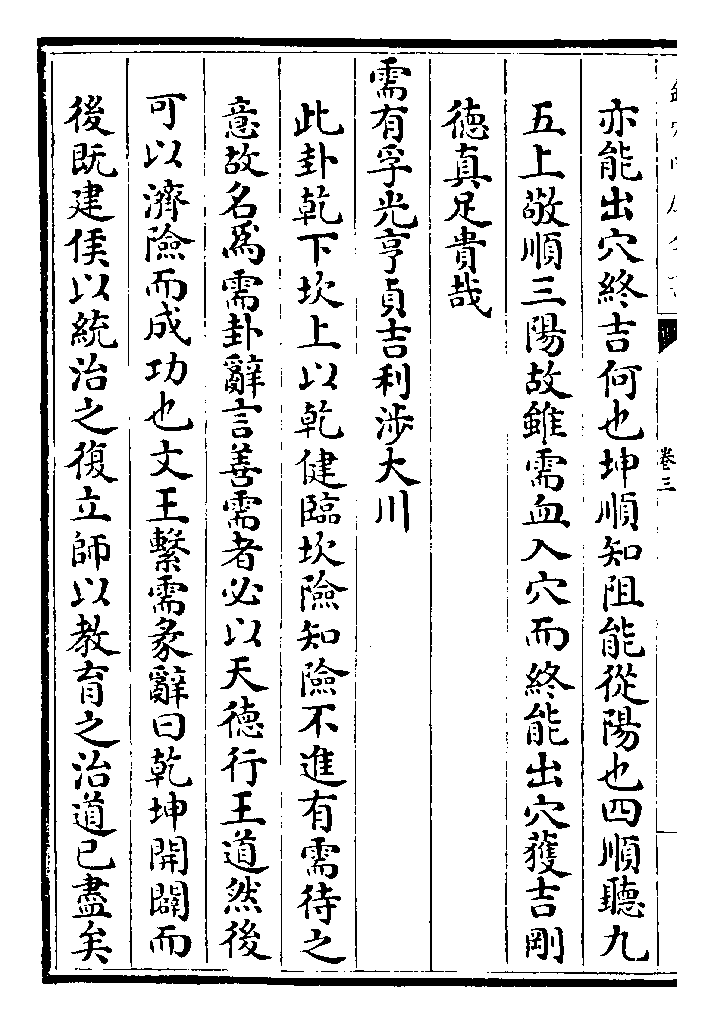 卷三
亦能出穴終吉何也坤順知阻能從陽也四順聽九
五上敬順三陽故雖需血入穴而終能出穴獲吉剛
德真足貴哉
需有孚光亨貞吉利涉大川
此卦乾下坎上以乾健臨坎險知險不進有需待之
意故名爲需卦辭言善需者必以天德行王道然後
可以濟險而成功也文王繫需彖辭曰乾坤開闢而
後既建侯以統治之復立師以教育之治道已盡矣